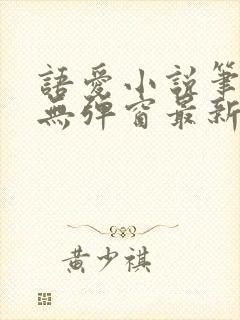 語愛小說筆
無彈窗最新
黃少祺